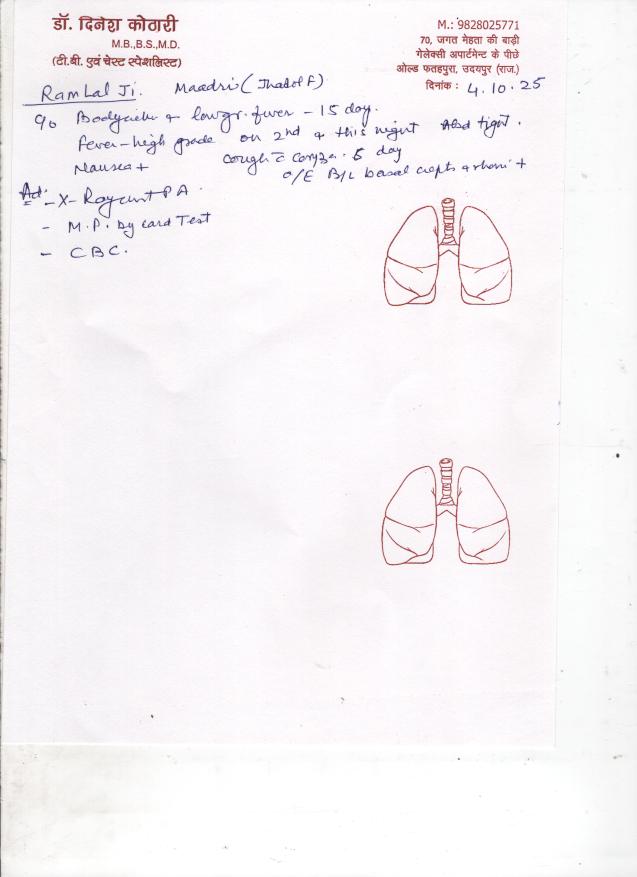 डॉ. दिनेश कोठारी
M.B.,B.S.,M.D.
(टी.बी. एवं चेस्ट स्पेशलिस्ट)
M.: 9828025771
70, जगत मेहता की बाड़ी
गेलेक्सी अपार्टमेन्ट के पीछे
ओल्ड फतहपुरा, उदयपुर (राज.)
दिनांक : 4.10.25
RamLal Ji. Maadri (Jhadol F)
c/o Bodyache & low gr. fever - 15 day.
Fever - high grade on 2nd & this night
Nausea + cough c coryza. 5 day
O/E B/L basal crepts & rhoni +
Ad:
- X-Ray PA.
- M.P. by card Test
- CBC.